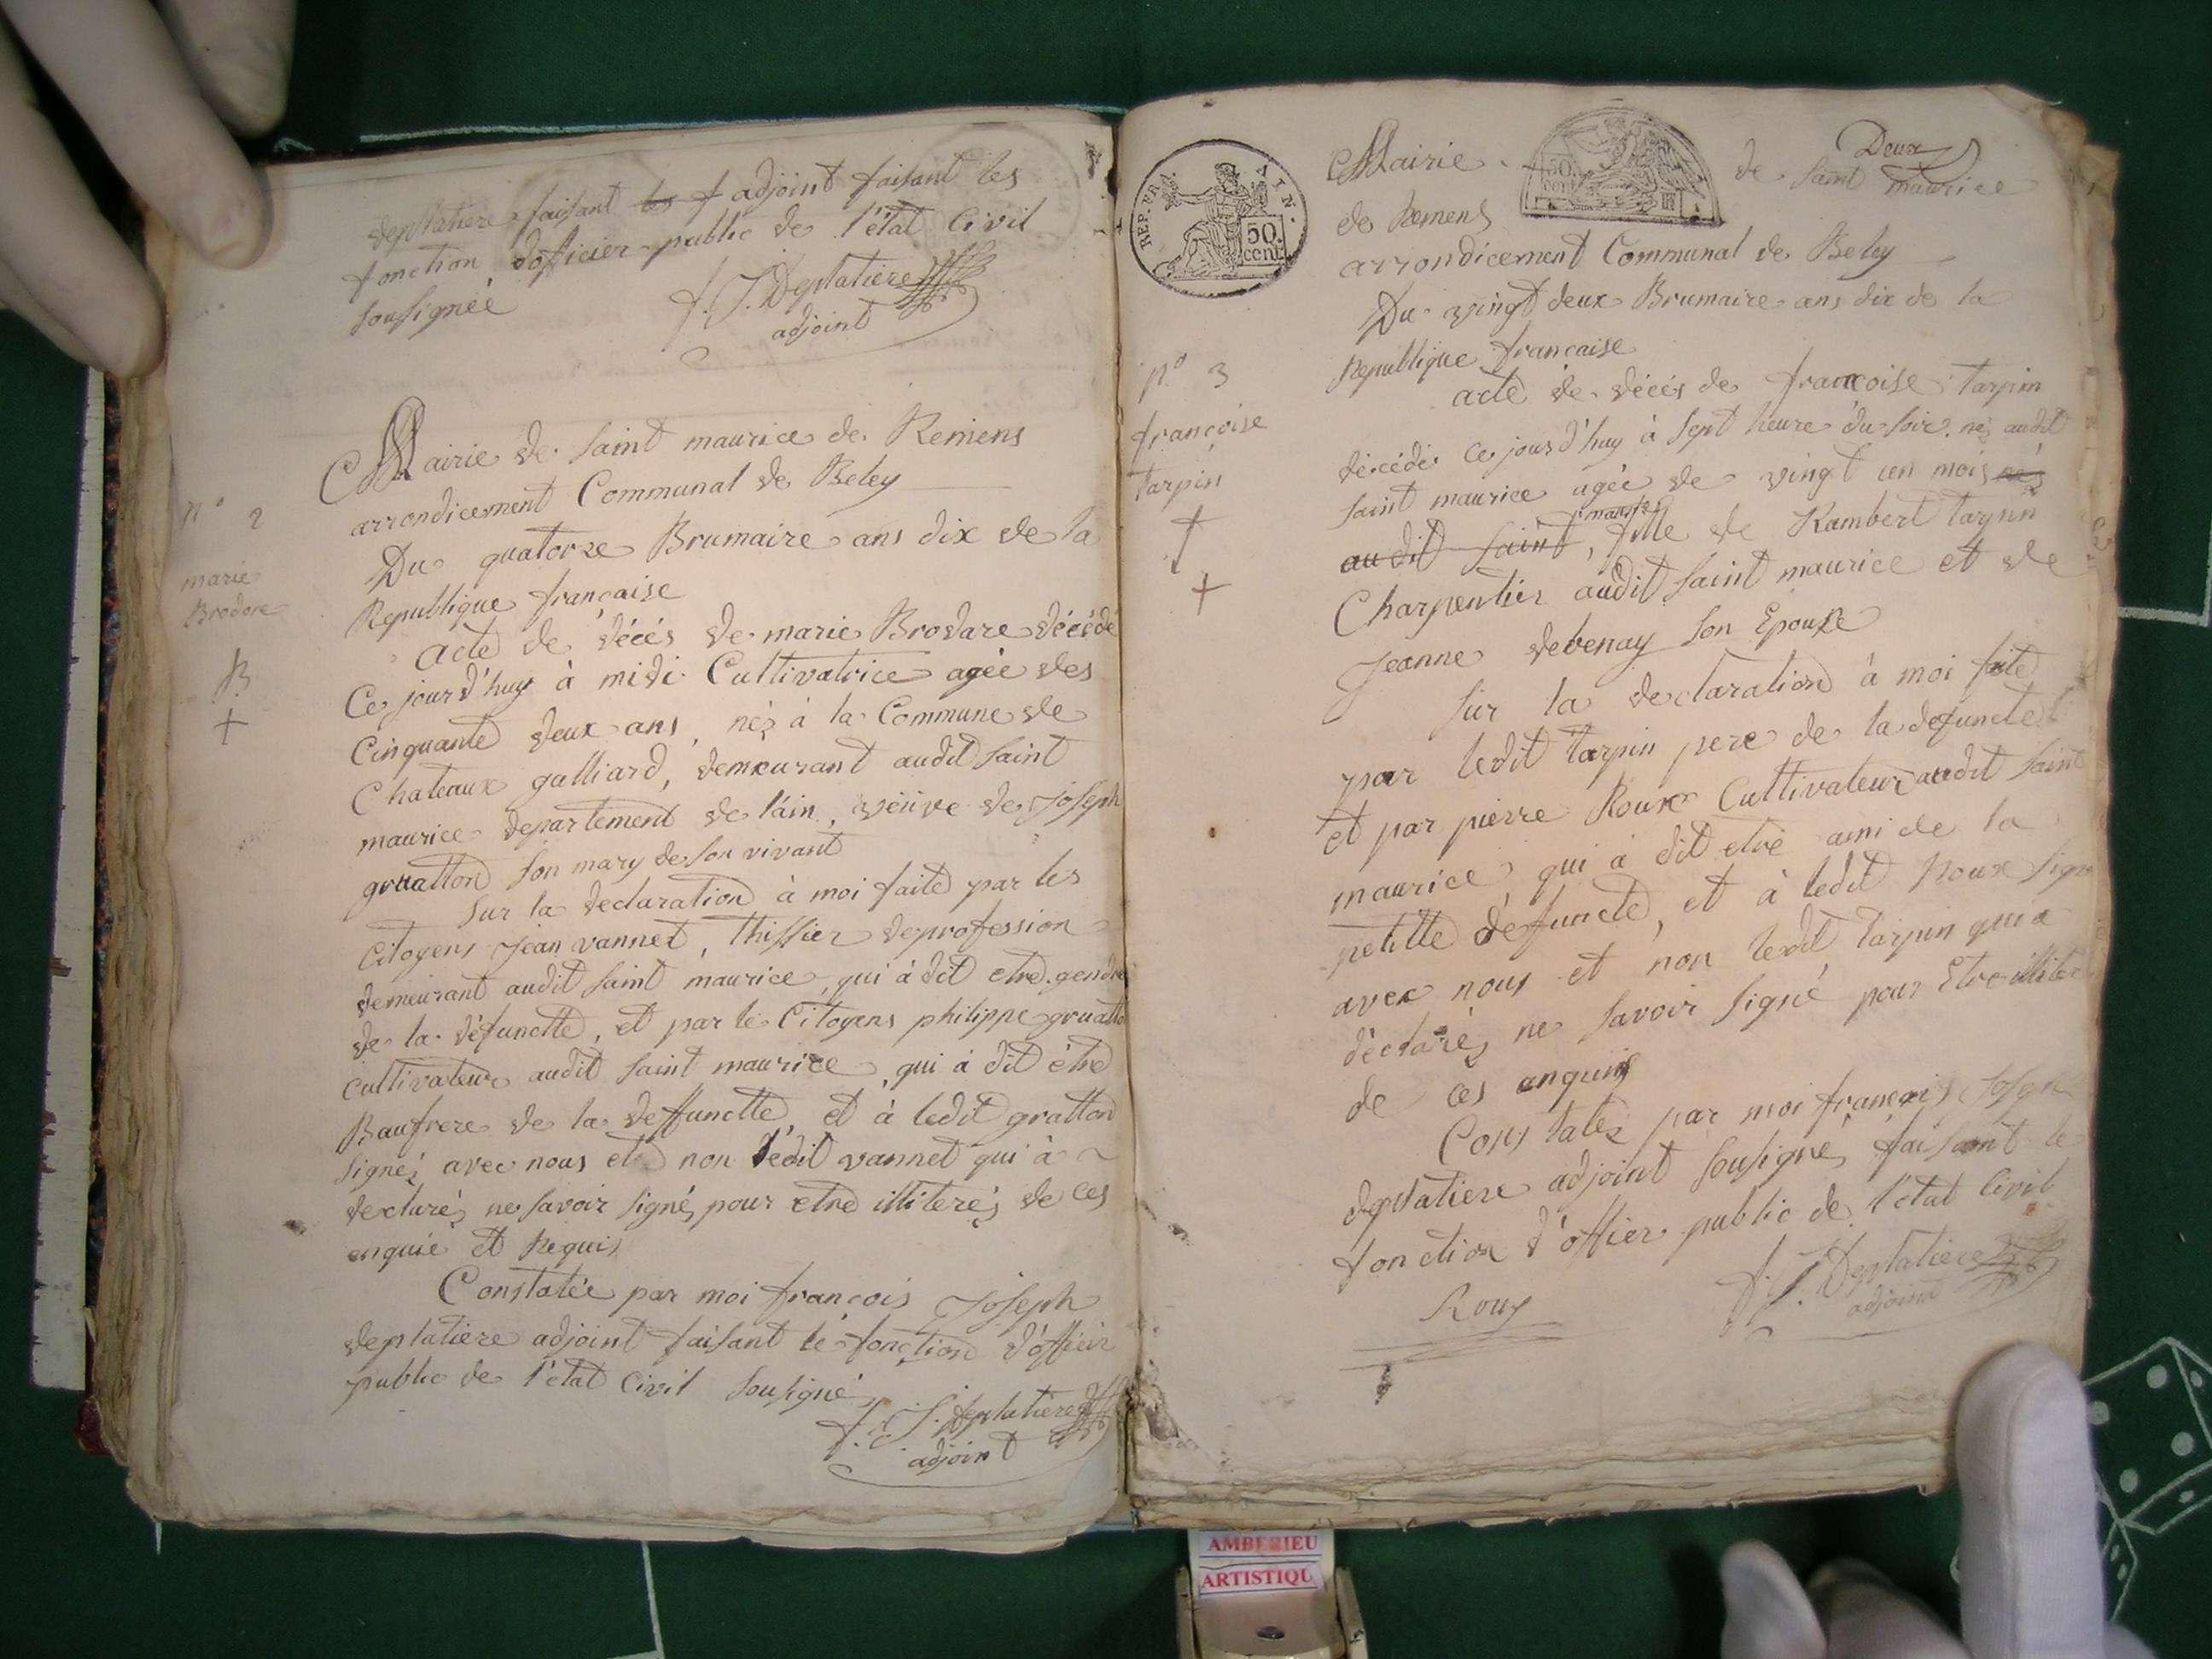 deplatiere faisant les f adjoint faisant les
fonction d'officier public de l'état Civil
sousignée
f. J. Deplatiere
adjoint
Mairie de saint maurice de Remens
arrondicement Communal de Beley
n° 2
Du quatorze Brumaire ans dix de la
Republique francaise
marie
Brodare
acte de décés de marie Brodare décédé
Ce jourd'huy à midi Cultivatrice agée des
B
+
Cinquante deux ans, néz à la Commune de
Chateaux galliard, demeurant audit saint
maurice departement de l'ain, véuve de Joseph
gruatton son mary de son vivant
Sur la declaration à moi faite par les
Citoyens Jean vannet, thissier de profession
demeurant audit saint maurice, qui à dit etre gendre
de la défunctte, et par le Citoyens philippe gruatto
cultivateur audit saint maurice, qui à dit être
Baufrere de la deffunctte, et à ledit gratton
signéz avec nous et non lédit vannet qui à
declaréz ne savoir signéz pour etre illiteréz de ces
enquié et Requis
Constatée par moi françois Joseph
deplatiere adjoint faisant lé fonction d'officir
public de l'état Civil sousigné
f. J. deplatiere
adjoint
Deux
Mairie de saint maurice
de Remens
REP. FRA. AIN.
50.
cent
50.
cent
arrondicement Communal de Beley
Du vingt deux Brumaire ans dix de la
Republique francaise
n° 3
françoise
tarpin
acte de décés de francoise tarpin
décédé ce jourd'huy à sept heure du soir. néz audit
saint maurice agée de vingt un mois néz
au dit saint, fille de Rambert tarpin
Charpentier audit saint maurice et de
+
+
Jeanne debenay son Epouse
sur la declaration à moi faite
par ledit tarpin pere de la defuncte
et par pierre Roux Cultivateur audit saint
maurice, qui à dit etre ami de la
petitte défuncte, et à ledit Roux sign
avec nous et non ledit tarpin qui a
déclaréz ne savoir signé pour Etre illiter
de ces anquis
Constatéz par moi françois Joseph
deplatiere adjoint sousigné, faisant le
fonction d'offier public de l'état Civil
Roux
f. J. Deplatiere
adjoint
AMBERIEU
ARTISTIQU